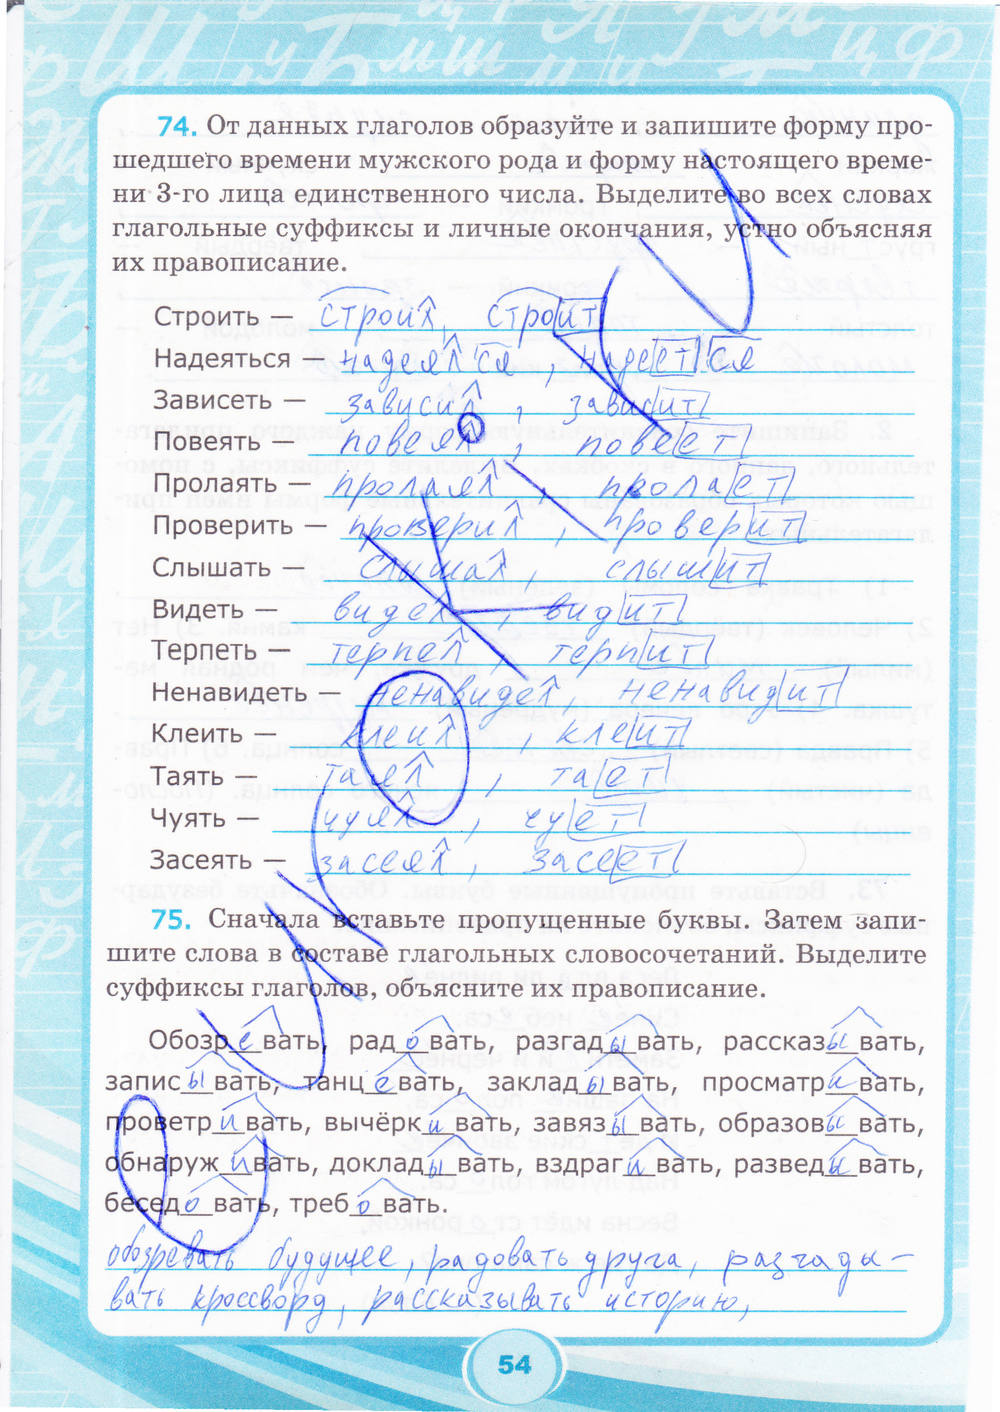 74. От данных глаголов образуйте и запишите форму про-
шедшего времени мужского рода и форму настоящего време-
ни 3-го лица единственного числа. Выделите во всех словах
глагольные суффиксы и личные окончания, устно объясняя
их правописание.
Строить — строил, строит
Надеяться — надеялся, надеется
Зависеть — зависил, зависит
Повеять — повеял, повеет
Пролаять — пролаял, пролает
Проверить — проверил, проверит
Слышать — слышал, слышит
Видеть — видел, видит
Терпеть — терпел, терпит
Ненавидеть — ненавидел, ненавидит
Клеить — клеил, клеит
Таять — таял, тает
Чуять — чуял, чует
Засеять — засеял, засеет
75. Сначала вставьте пропущенные буквы. Затем запи-
шите слова в составе глагольных словосочетаний. Выделите
суффиксы глаголов, объясните их правописание.
Обозревать, радовать, разгадывать, рассказывать,
записывать, танцевать, закладывать, просматривать,
проветривать, вычёркивать, завязывать, образовывать,
обнаруживать, докладывать, вздрагивать, разведывать,
беседовать, требовать.
обозревать будущее, радовать друга, разгады-
вать кроссворд, рассказывать историю,
54